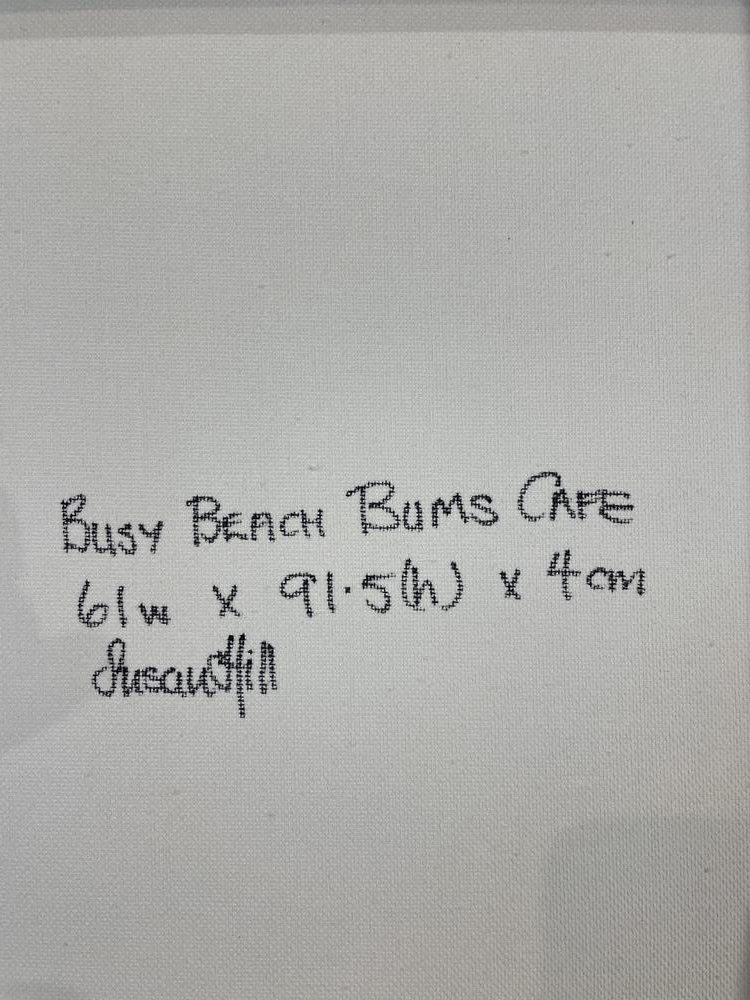 BUSY BEACH BUMS CAFE
61w x 91.5(h) x 4cm
Susan Hill